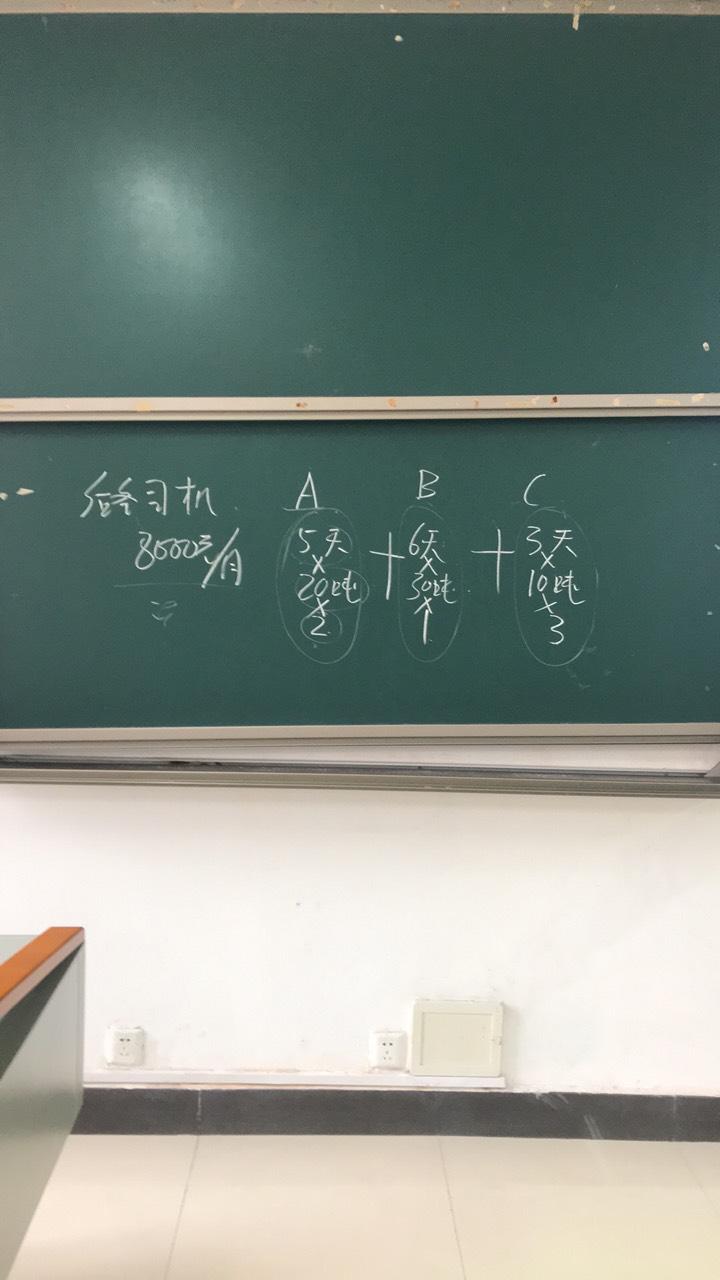 司机 A B C
8000元/月 5天 + 6天 + 3天
× × ×
20吨 30吨 10吨
× × ×
2 1 3